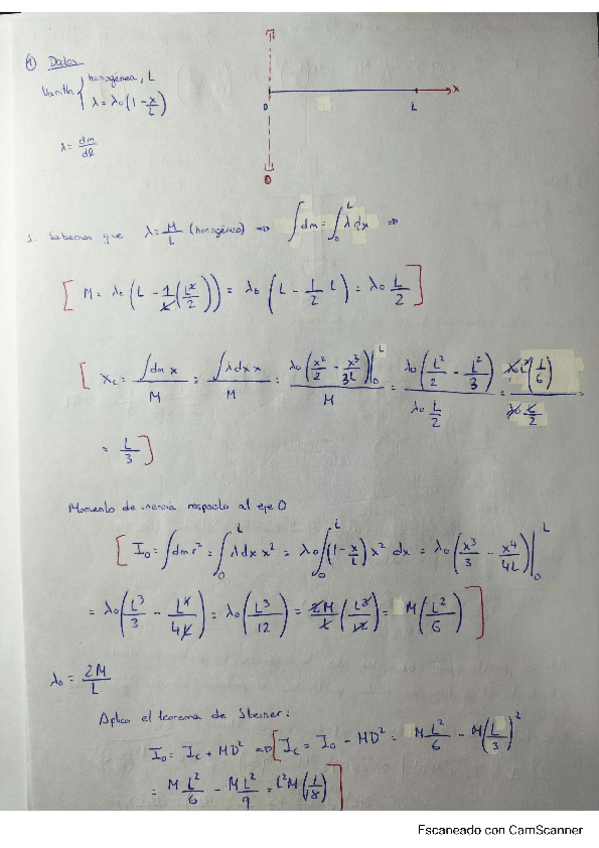 ① Datos
Varilla { homogénea, L
λ = λ0(1 - x/L)
O L x
λ = dm/dl
O
1. Sabemos que λ = M/L (homogénea) => ∫dm = ∫₀ᴸ λdx =>
[ M = λ0(L - 1/L(L²/2)) = λ0(L - 1/2 L) = λ0 L/2 ]
[ Xc = ∫dm x / M = ∫λdx x / M = λ0(x²/2 - x³/3L)|₀ᴸ / M = λ0(L²/2 - L²/3) / λ0 L/2 = λ0L²(1/6) / λ0 L/2 =
= L/3 ]
Momento de inercia respecto al eje O
[ I0 = ∫dm r² = ∫₀ᴸ λdx x² = λ0∫₀ᴸ(1 - x/L) x² dx = λ0(x³/3 - x⁴/4L)|₀ᴸ
= λ0(L³/3 - L⁴/4L) = λ0(L³/12) = 2M/L (L³/12) = M(L²/6) ]
λ0 = 2M/L
Aplico el teorema de Steiner:
I0 = Ic + MD² => [ Ic = I0 - MD² = M L²/6 - M(L/3)²
= M L²/6 - M L²/9 = L²M(1/18) ]
Escaneado con CamScanner